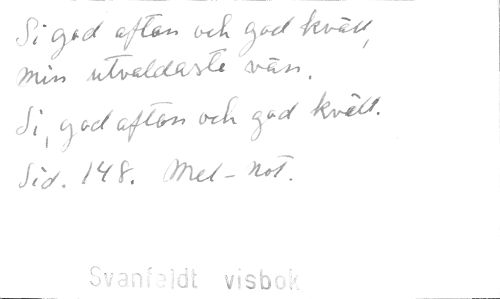 Si god afton och god kväll,
min utvaldaste vän.
Si, god afton och god kväll.
Sid. 148. Mel-not.
Svanfeldt visbok